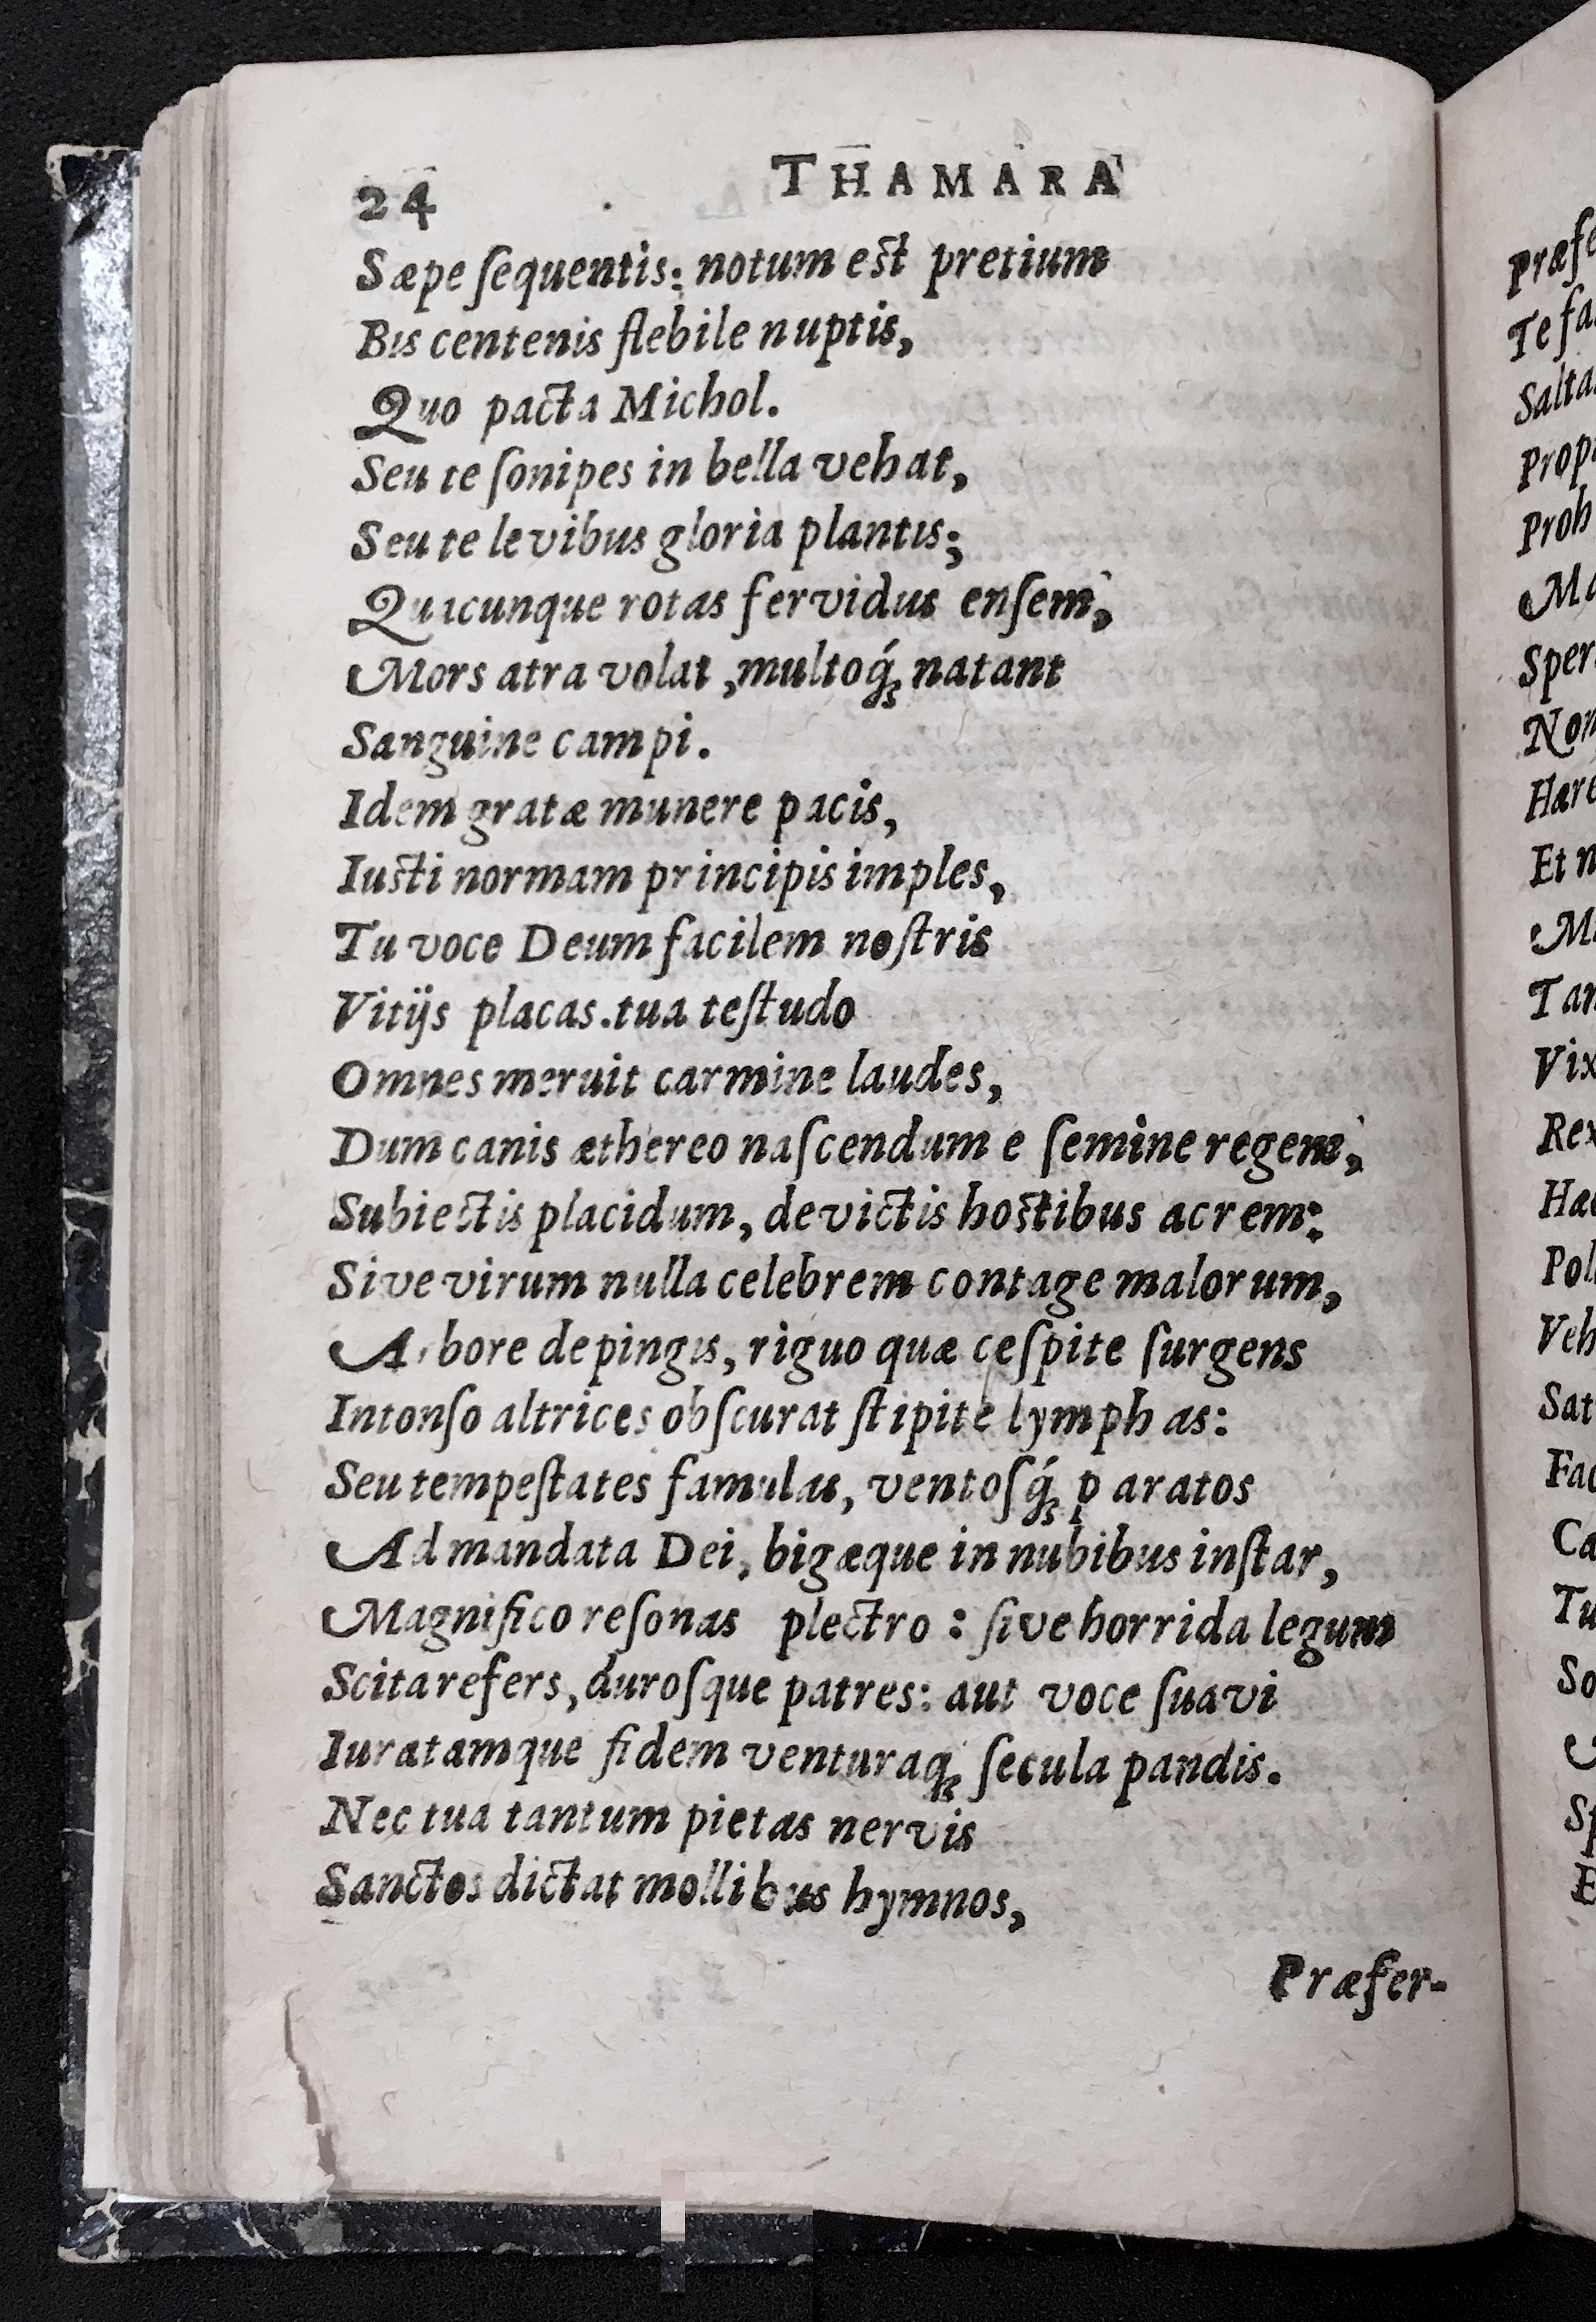 24 THAMARA
Sæpe ſequentis: notum est pretium
Bis centenis flebile nuptis,
Quo pacta Michol.
Seu te ſonipes in bella vehat,
Seu te levibus gloria plantis;
Quicunque rotas fervidus enſem,
Mors atra volat, multoq́; natant
Sanguine campi.
Idem gratæ munere pacis,
Iusti normam principis imples,
Tu voce Deum facilem noſtris
Vitijs placas. tua teſtudo
Omnes meruit carmine laudes,
Dum canis æthereo naſcendum e ſemine regem,
Subiectis placidum, devictis hostibus acrem:
Sive virum nulla celebrem contage malorum,
Arbore depingis, riguo quæ ceſpite ſurgens
Intonſo altrices obſcurat ſtipite lymphas:
Seu tempeſtates famulas, ventoſq́; paratos
Ad mandata Dei, bigæque in nubibus inſtar,
Magnifico reſonas plectro : ſive horrida legum
Scita refers, duroſque patres: aut voce ſuavi
Iuratamque fidem venturaq; ſecula pandis.
Nec tua tantum pietas nervis
Sanctos dictat mollibus hymnos,
Præfer-
Præfe
Te fa
Salta
Prop
Proh
Sper
Non
Hære
Et n
Tan
Vix
Rex
Hæ
Pol
Veh
Sat
Fac
Ca
Tu
So
Sp
E